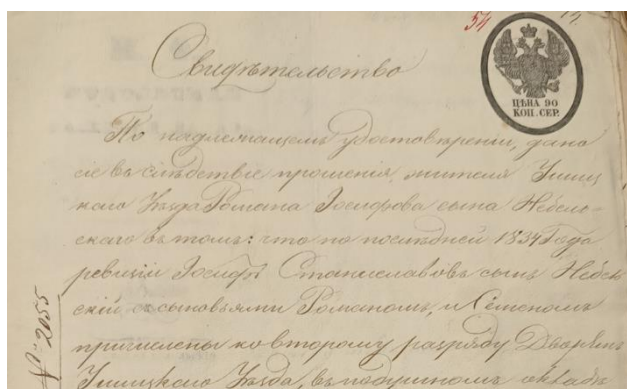 54
14.
ЦѢНА 90
КОП. СЕР.
Свидѣтельство
По надлежащемъ удостовѣреніи, дано
сіе въ слѣдствіе прошенія жителя Ушиц
каго Уѣзда Романа Іосифова сына Небель-
скаго въ томъ: что по послѣдней 1834 Года
ревизіи Іосифъ Станиславовъ сынъ Небель
скій, съ сыновьями Романомъ, и Семеномъ
причислены ко второму разряду Дворянъ
Ушицкаго Уѣзда, въ подушномъ окладѣ
№ 2055